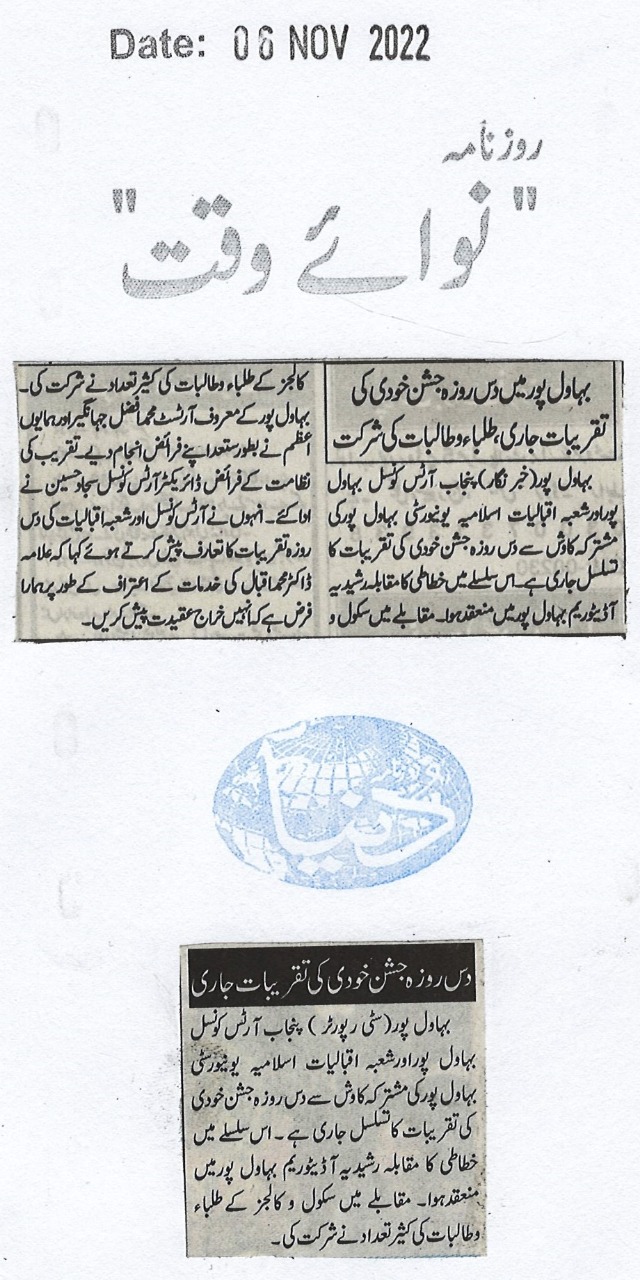 Date: 06 NOV 2022
روزنامہ
"نوائے وقت"
بہاول پور میں دس روزہ جشن خودی کی
تقریبات جاری، طلباء و طالبات کی شرکت
بہاول پور (خبر نگار) پنجاب آرٹس کونسل بہاول
پور اور شعبہ اقبالیات اسلامیہ یونیورسٹی بہاول پور کی
مشترکہ کاوش سے دس روزہ جشن خودی کی تقریبات کا
تسلسل جاری ہے۔ اس سلسلے میں خطاطی کا مقابلہ رشیدیہ
آڈیٹوریم بہاول پور میں منعقد ہوا۔ مقابلے میں سکول و
کالجز کے طلباء و طالبات کی کثیر تعداد نے شرکت کی۔
بہاول پور کے معروف آرٹسٹ محمد افضل جہانگیر اور ہمایوں
اعظم نے بطور ستعد اپنے فرائض انجام دیے۔ تقریب کی
نظامت کے فرائض ڈائریکٹر آرٹس کونسل سجاد حسین نے
ادا کئے۔ انہوں نے آرٹس کونسل اور شعبہ اقبالیات کی دس
روزہ تقریبات کا تعارف پیش کرتے ہوئے کہا کہ علامہ
ڈاکٹر محمد اقبال کی خدمات کے اعتراف کے طور پر ہمارا
فرض ہے کہ انہیں خراج عقیدت پیش کریں۔
دنیا
دس روزہ جشن خودی کی تقریبات جاری
بہاول پور (سٹی رپورٹر) پنجاب آرٹس کونسل
بہاول پور اور شعبہ اقبالیات اسلامیہ یونیورسٹی
بہاول پور کی مشترکہ کاوش سے دس روزہ جشن خودی
کی تقریبات کا تسلسل جاری ہے۔ اس سلسلے میں
خطاطی کا مقابلہ رشیدیہ آڈیٹوریم بہاول پور میں
منعقد ہوا۔ مقابلے میں سکول و کالجز کے طلباء
و طالبات کی کثیر تعداد نے شرکت کی۔